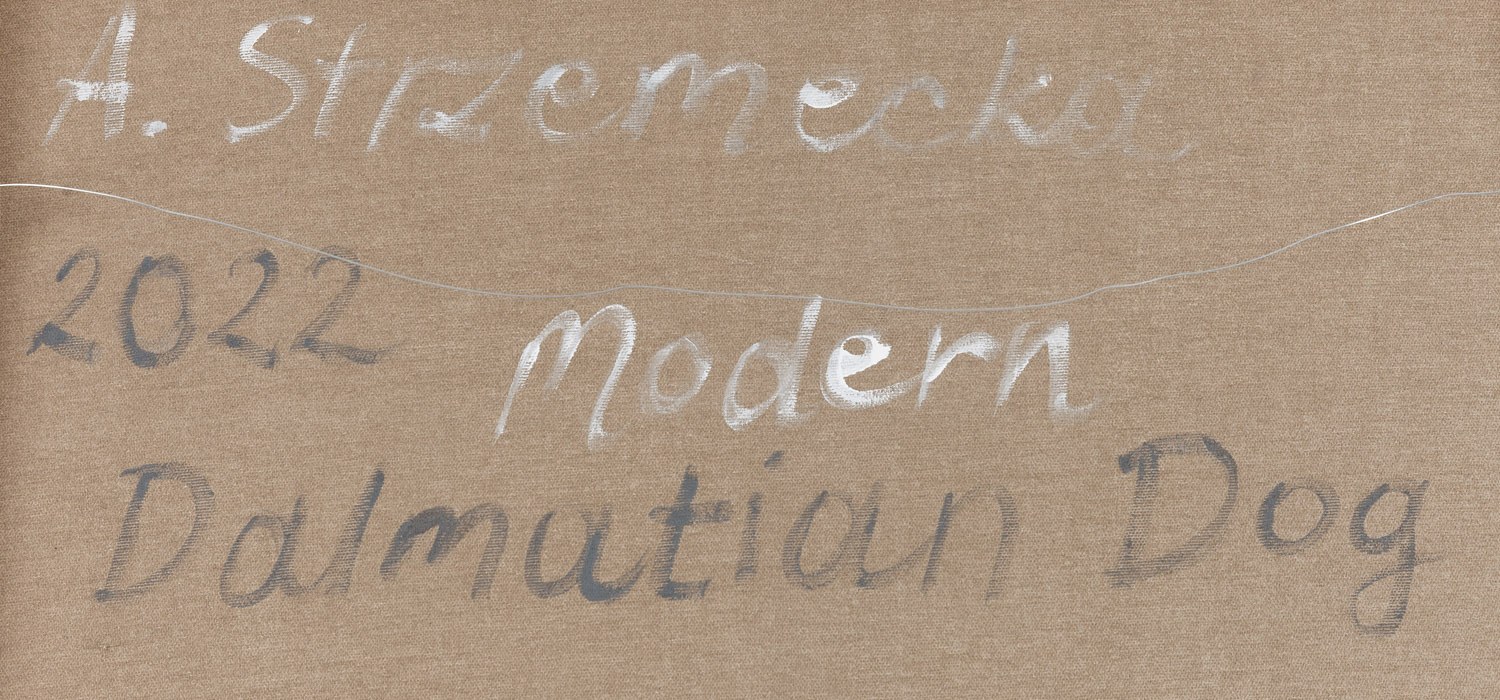 A. Strzemecka
2022
Modern
Dalmatian Dog